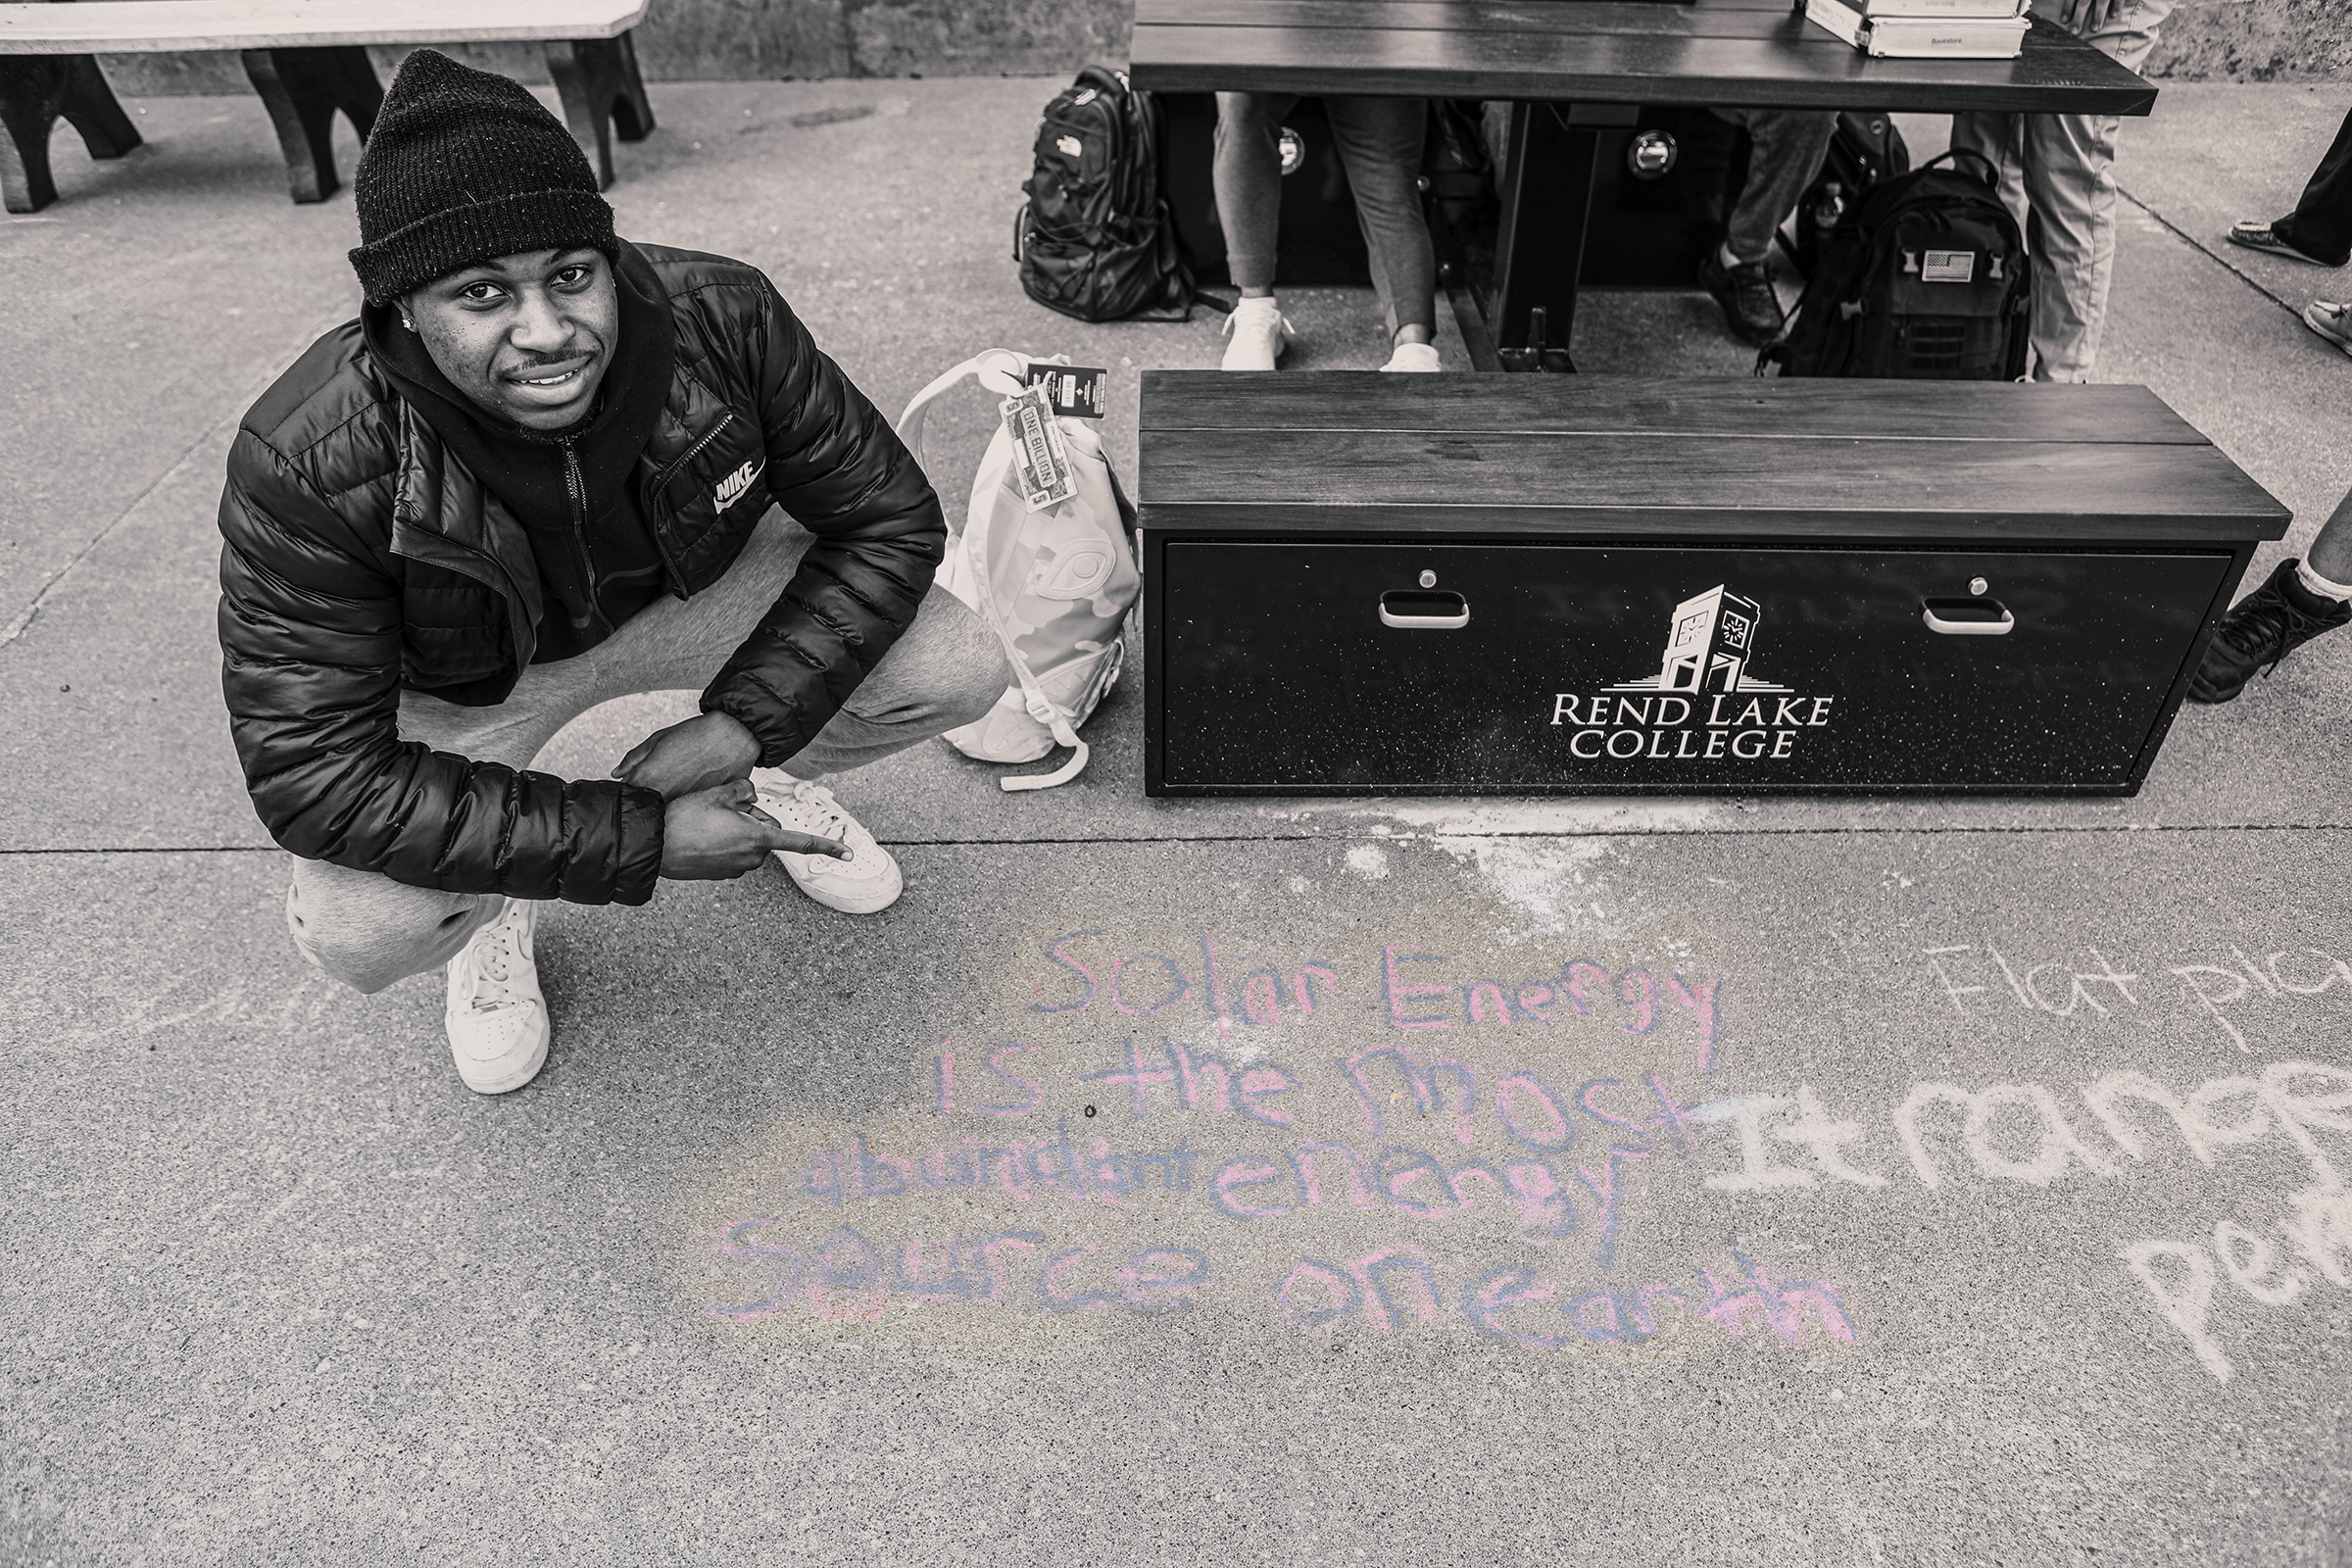 Bookstore
ONE BILLION
NIKE
REND LAKE
COLLEGE
Solar Energy
is the most
abundant energy
Source on earth
Flat
It